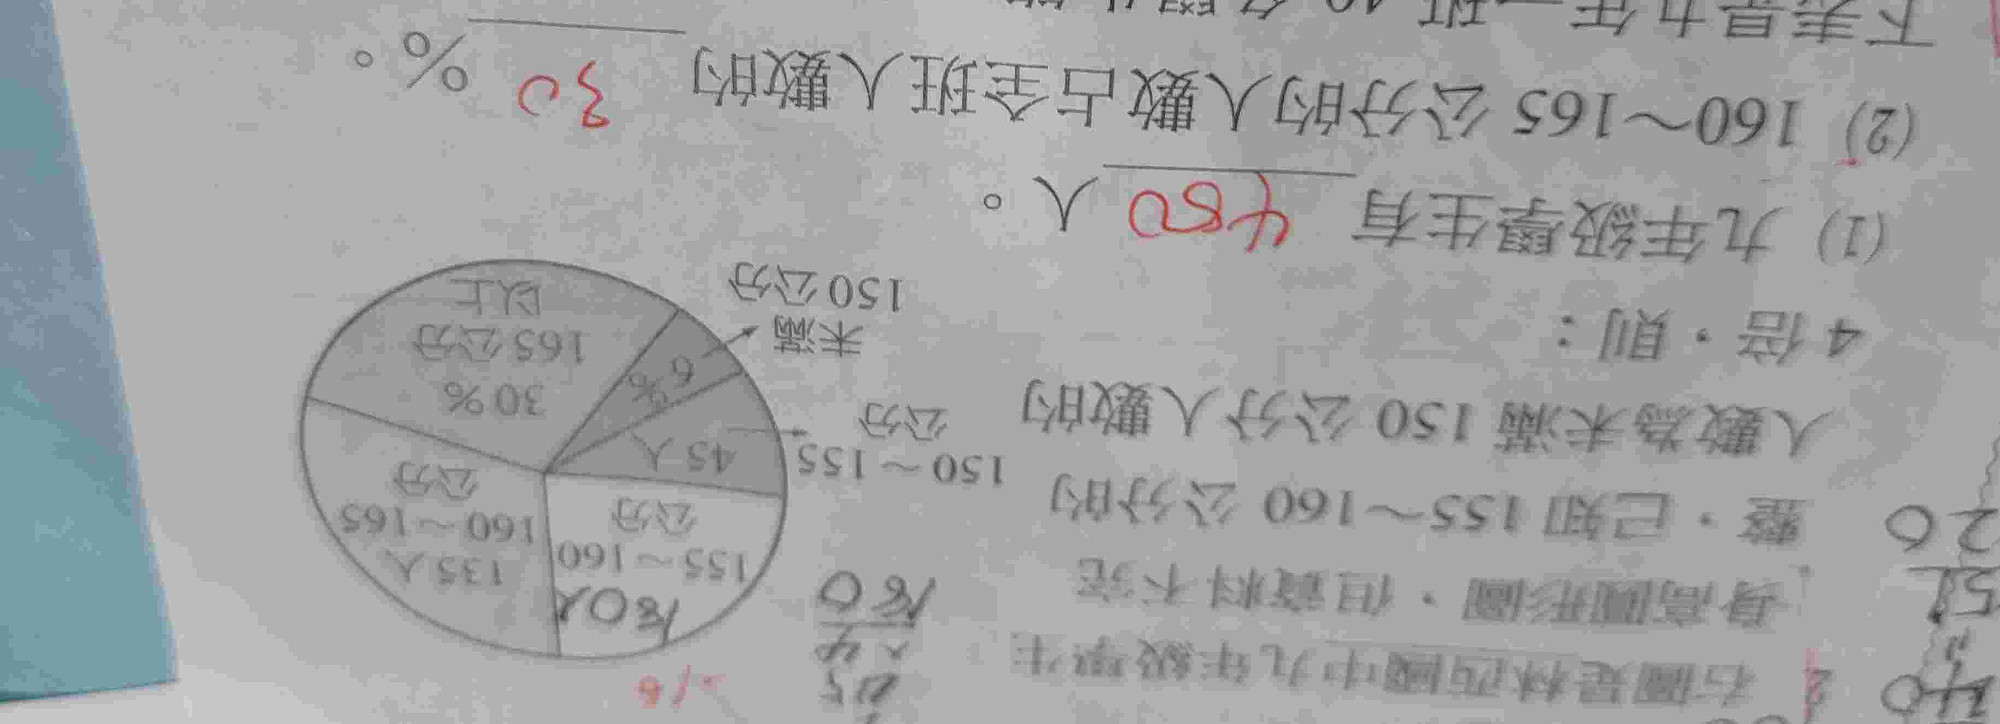 右圖是林西國中九年級學生
身高圓形圖，但資料不完
整，已知 155～160 公分的
人數為未滿 150 公分人數的
4 倍，則：
(1) 九年級學生有 450 人。
(2) 160～165 公分的人數占全班人數的 30 %。
下表是九年一班 40 名學生
45
×4
180
180人
155～160
公分
135人
160～165
公分
45人
150～155
公分
6%
未滿
150公分
30%
165公分
以上